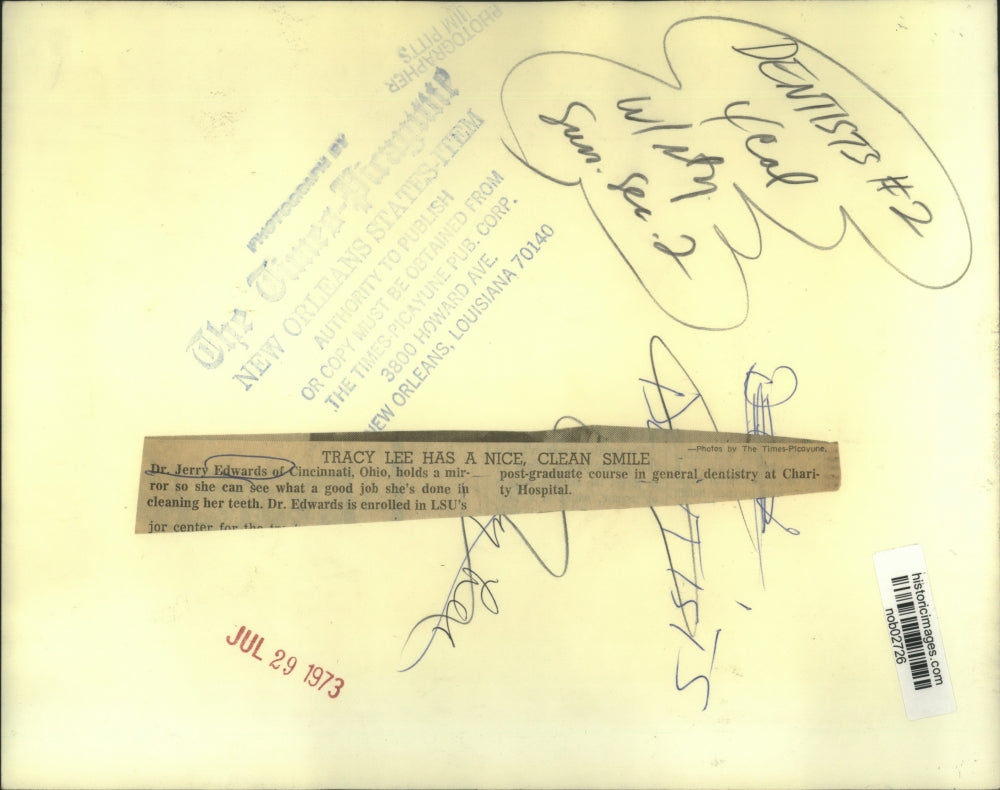 PHOTOGRAPHER
JIM PITTS
PHOTOGRAPH BY
The Times-Picayune
NEW ORLEANS STATES-ITEM
AUTHORITY TO PUBLISH
OR COPY MUST BE OBTAINED FROM
THE TIMES-PICAYUNE PUB. CORP.
3800 HOWARD AVE.
NEW ORLEANS, LOUISIANA 70140
DENTISTS #2
4 col
Sun. Sec. 2
TRACY LEE HAS A NICE, CLEAN SMILE
—Photos by The Times-Picayune.
Dr. Jerry Edwards of Cincinnati, Ohio, holds a mir-
ror so she can see what a good job she's done in
cleaning her teeth. Dr. Edwards is enrolled in LSU's
post-graduate course in general dentistry at Chari-
ty Hospital.
jor center for the
Lee
JUL 29 1973
historicimages.com
nob02726